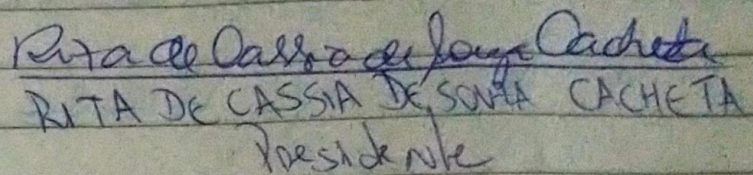 Rita de Cassia de Souza Cacheta
RITA DE CASSIA DE SOUZA CACHETA
Presidente